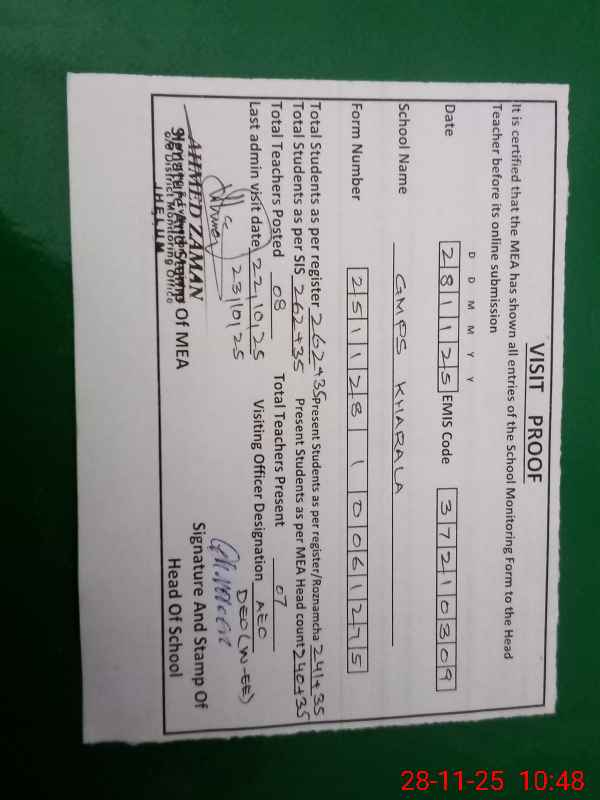 VISIT PROOF
It is certified that the MEA has shown all entries of the School Monitoring Form to the Head
Teacher before its online submission
D D M M Y Y
Date 2 8 1 1 2 5 EMIS Code 3 7 2 1 0 3 0 9
School Name GMPS KHARALA
Form Number 2 5 1 1 2 8 1 0 0 6 1 2 7 5
Total Students as per register 262+35 Present Students as per register/Roznamcha 241+35
Total Students as per SIS 262+35 Present Students as per MEA Head count 240+35
Total Teachers Posted 08 Total Teachers Present 07
Last admin visit date 22,10,25 Visiting Officer Designation AEO
23/10/25 DEO(W-EE)
AHMED ZAMAN
Signature And Stamp Of MEA
O/O District Monitoring Office
JHELUM
Signature And Stamp Of
Head Of School
28-11-25 10:48